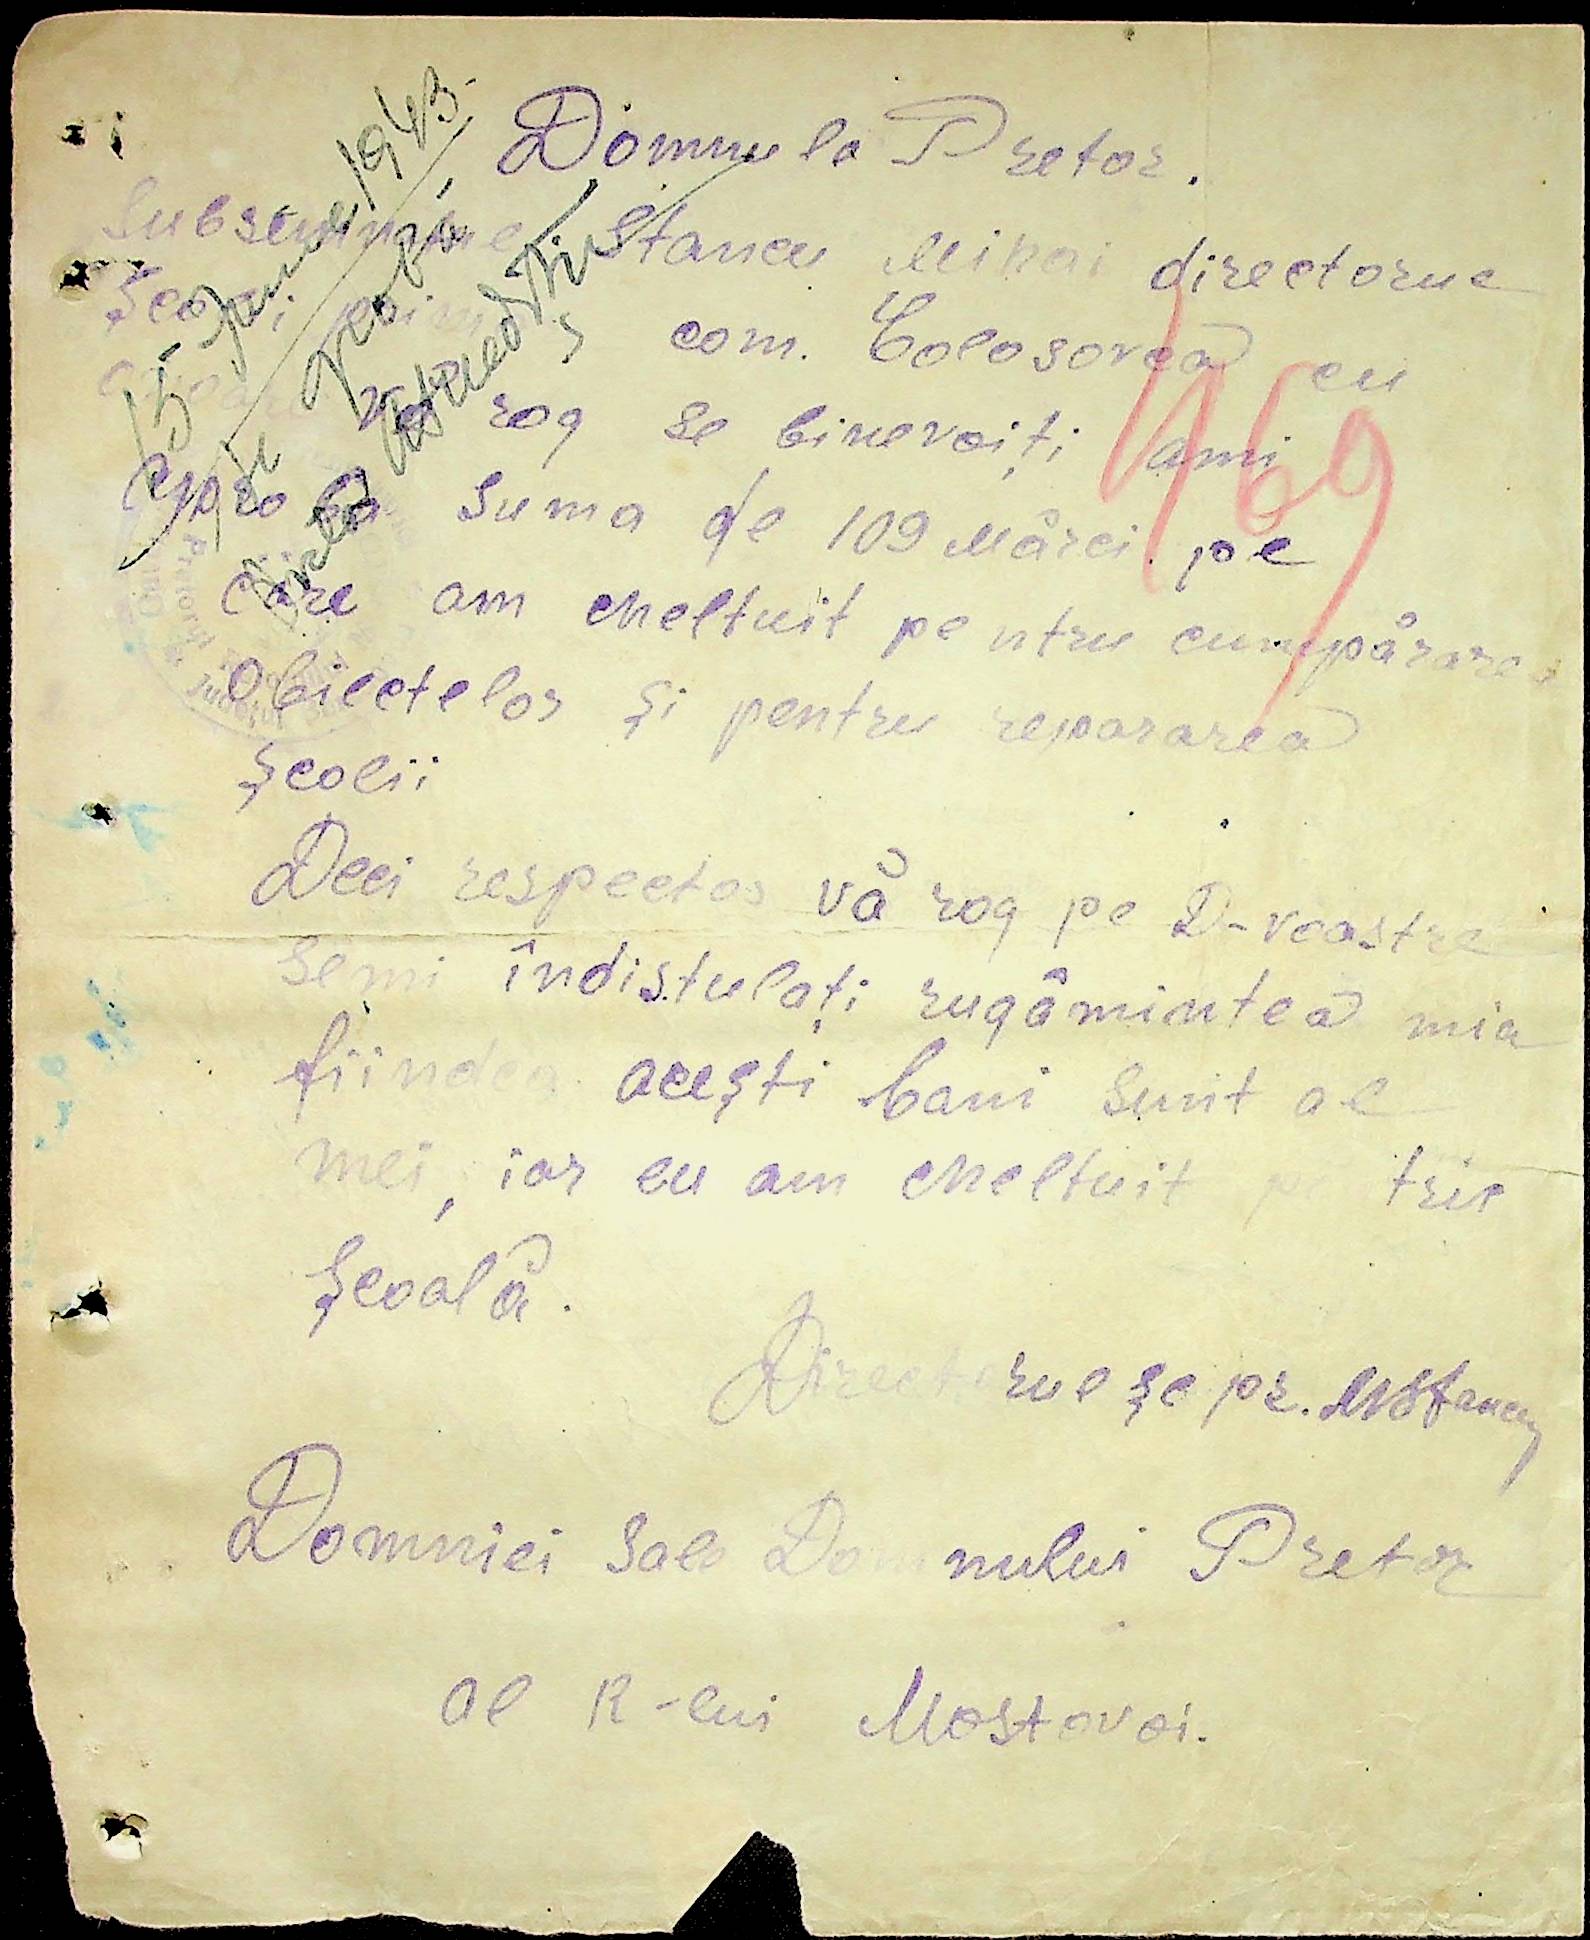 Domnule Pretor.
Subsemnatul Stancu Mihai directorul
Școlii prim com. Colosovca cu
onoare vă rog se binevoiți ami
aproba suma de 109 Mărci pe
care am cheltuit pentru cumpărarea
obiectelor și pentru repararea
școlii
Deci respectos vă rog pe D-voastre
semi îndistulați rugămintea mia
fiindca acești bani sunt al
mei, iar eu am cheltuit pe tru
școală.
Directorul șc pr. MStancu
Domniei Sale Domnului Pretor
al R-lui Mostovoi.
15 1943
169